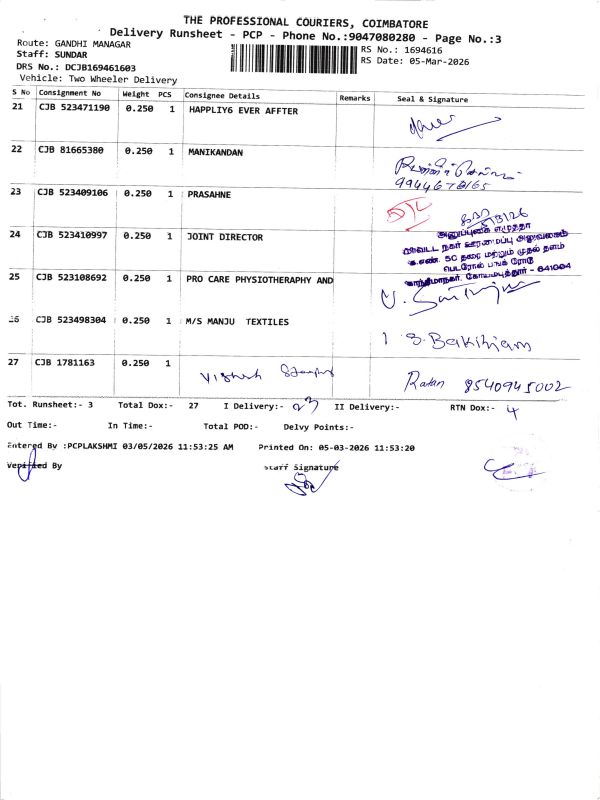 THE PROFESSIONAL COURIERS, COIMBATORE
Delivery Runsheet - PCP - Phone No.:9047080280 - Page No.:3
Route: GANDHI MANAGAR
Staff: SUNDAR
DRS No.: DCJB169461603
Vehicle: Two Wheeler Delivery
RS No.: 1694616
RS Date: 05-Mar-2026
S No Consignment No Weight PCS Consignee Details Remarks Seal & Signature
21 CJB 523471190 0.250 1 HAPPLIY6 EVER AFFTER
22 CJB 81665380 0.250 1 MANIKANDAN
23 CJB 523409106 0.250 1 PRASAHNE
D/L
24 CJB 523410997 0.250 1 JOINT DIRECTOR
25 CJB 523108692 0.250 1 PRO CARE PHYSIOTHERAPHY AND
26 CJB 523498304 0.250 1 M/S MANJU TEXTILES
S. Bakihiam
27 CJB 1781163 0.250 1
Ratan 8540945002
Tot. Runsheet:- 3 Total Dox:- 27 I Delivery:- 23 II Delivery:- RTN Dox:- 4
Out Time:- In Time:- Total POD:- Delvy Points:-
Entered By :PCPLAKSHMI 03/05/2026 11:53:25 AM Printed On: 05-03-2026 11:53:20
Verified By Staff Signature